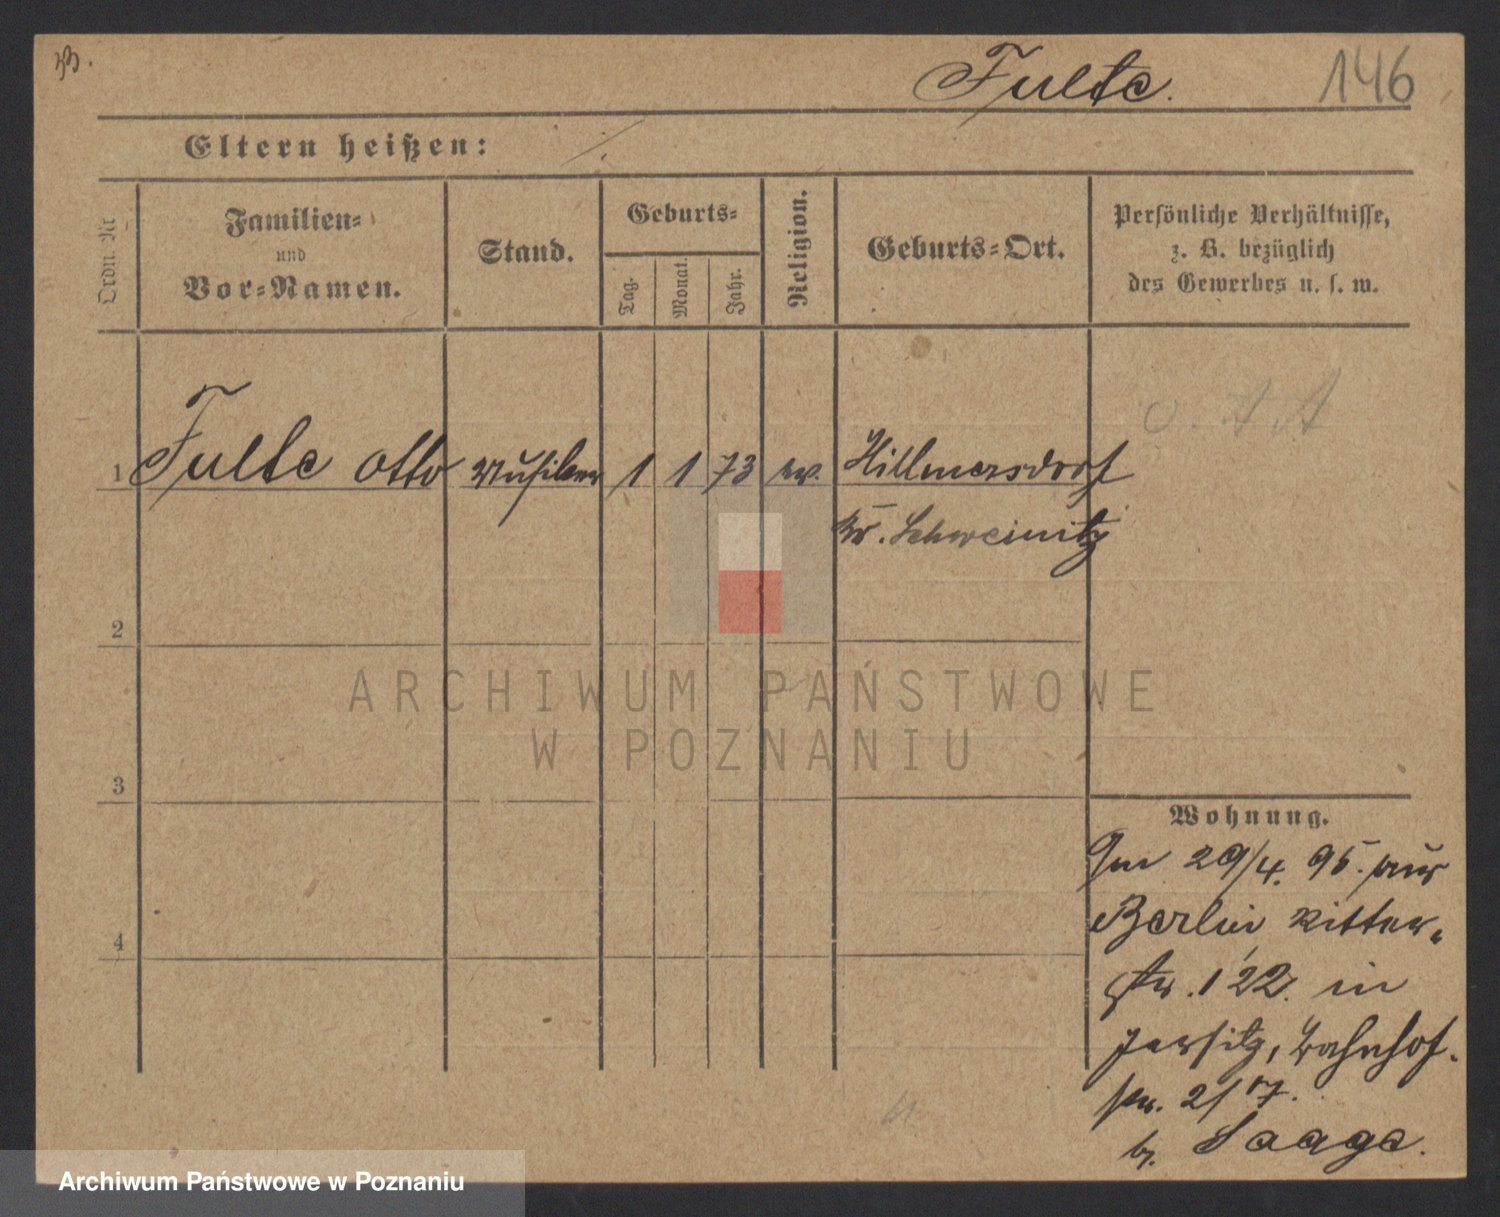 Fulte. 146
Eltern heißen: /.
Ordn. Nr
Familien-
und
Vor-Namen.
Stand.
Geburts-
Tag.
Monat.
Jahr.
Religion.
Geburts-Ort.
Persönliche Verhältnisse,
z. B. bezüglich
des Gewerbes u. s. w.
1 Fulte Otto Musiker 1 1 73 ev. Hillmersdorf
Kr. Schweinitz
2
3
4
Wohnung.
Am 29/4. 95. aus
Berlin Ritter-
str. 122. in
Jersitz, Bahnhof-
str. 2/
b. Saage.
ARCHIWUM PAŃSTWOWE
W POZNANIU
Archiwum Państwowe w Poznaniu